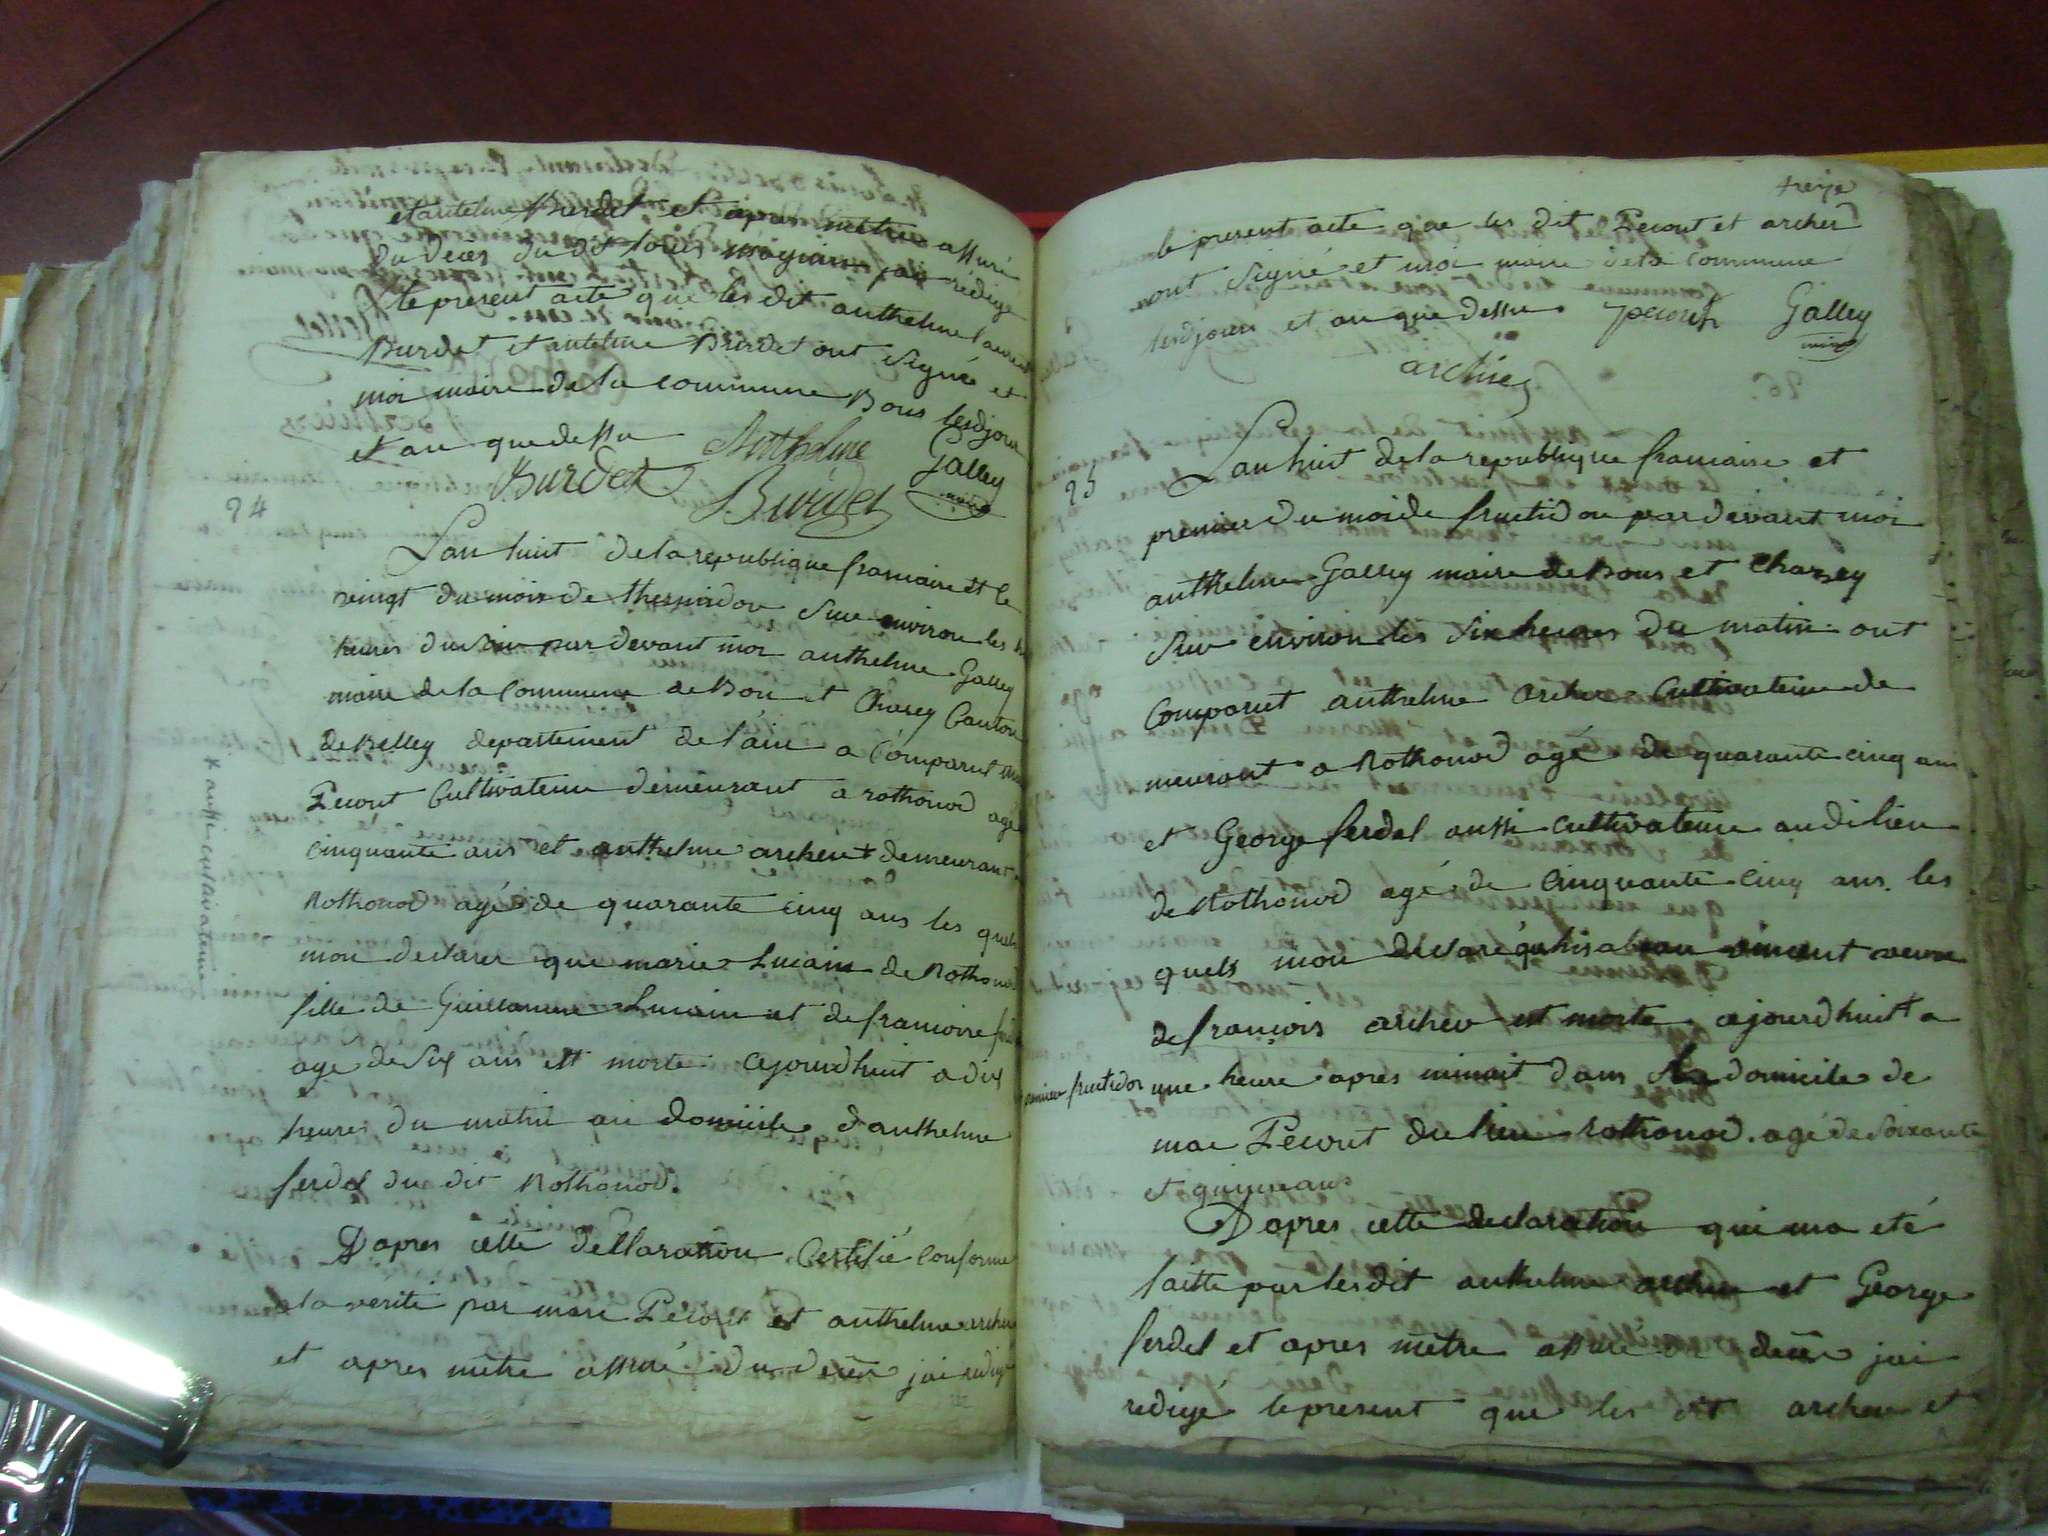 et anteline Burdet et apres mêtre assuré
du deces du dit jai rédigé
le present acte que les dit anthelme
Burdet et anteline Burdet ont signé et
moi maire de la commune Bons lesdjour
et an que dessu Anthelme Galley
Burdet Burdet maire
24
Lan huit de la republique francaise et le
vingt du mois de thermidor sur environ les
heures du soir par devant moi anthelme Galley
maire de la Commune de Bon et Chasey Canton
de Belley departement de l'ain a Comparut
Pecout Cultivateur demeurant a rothonod agé
cinquante ans et anthelme archer + demeurant
+ aussi cultivateur
Rothonod agé de quarante cinq ans les quels
mon declarer que marie Lucain de Rothonod
fille de Guillaume Lucain et de francoise
age de six ans est morte ajourdhuit a dix
heures du matin au domicile d'anthelme
ferdel du dit Rothonod.
D'apres cette dellaration Certifié conforme
a la verité par marc Pecout et anthelme archer
et apres mêtre assuré du décès jai redigé
treize
le present acte que les dit Pecout et archer
ont signé et moi maire de la commune
lesdjour et an que dessu pecout Galley
maire
archier
25
Lan huit de la republique francaise et
premier du mois de fructidor par devant moi
anthelme Galley maire de Bons et Chazey
sur environ les six heures du matin ont
Comparut anthelme archer Cultivateur de
meurant a Rothonod agé de quarante cinq ans
et George ferdel aussi cultivateur audi lieu
de Rothonod agé de cinquante cinq ans. les
quels mon declaré quhisabeau vincent veuve
de françois archer est morte ajourdhuit + a
premier fructidor une heure apres minuit dans le domicile de
marc Pecout du lieu Rothonod. agé de soixante
et quinze ans
D'apres cette declaration qui ma eté
faitte par lesdit anthelme archer et George
ferdel et apres mêtre assuré du décès jai
redigé le present que les dit archer et